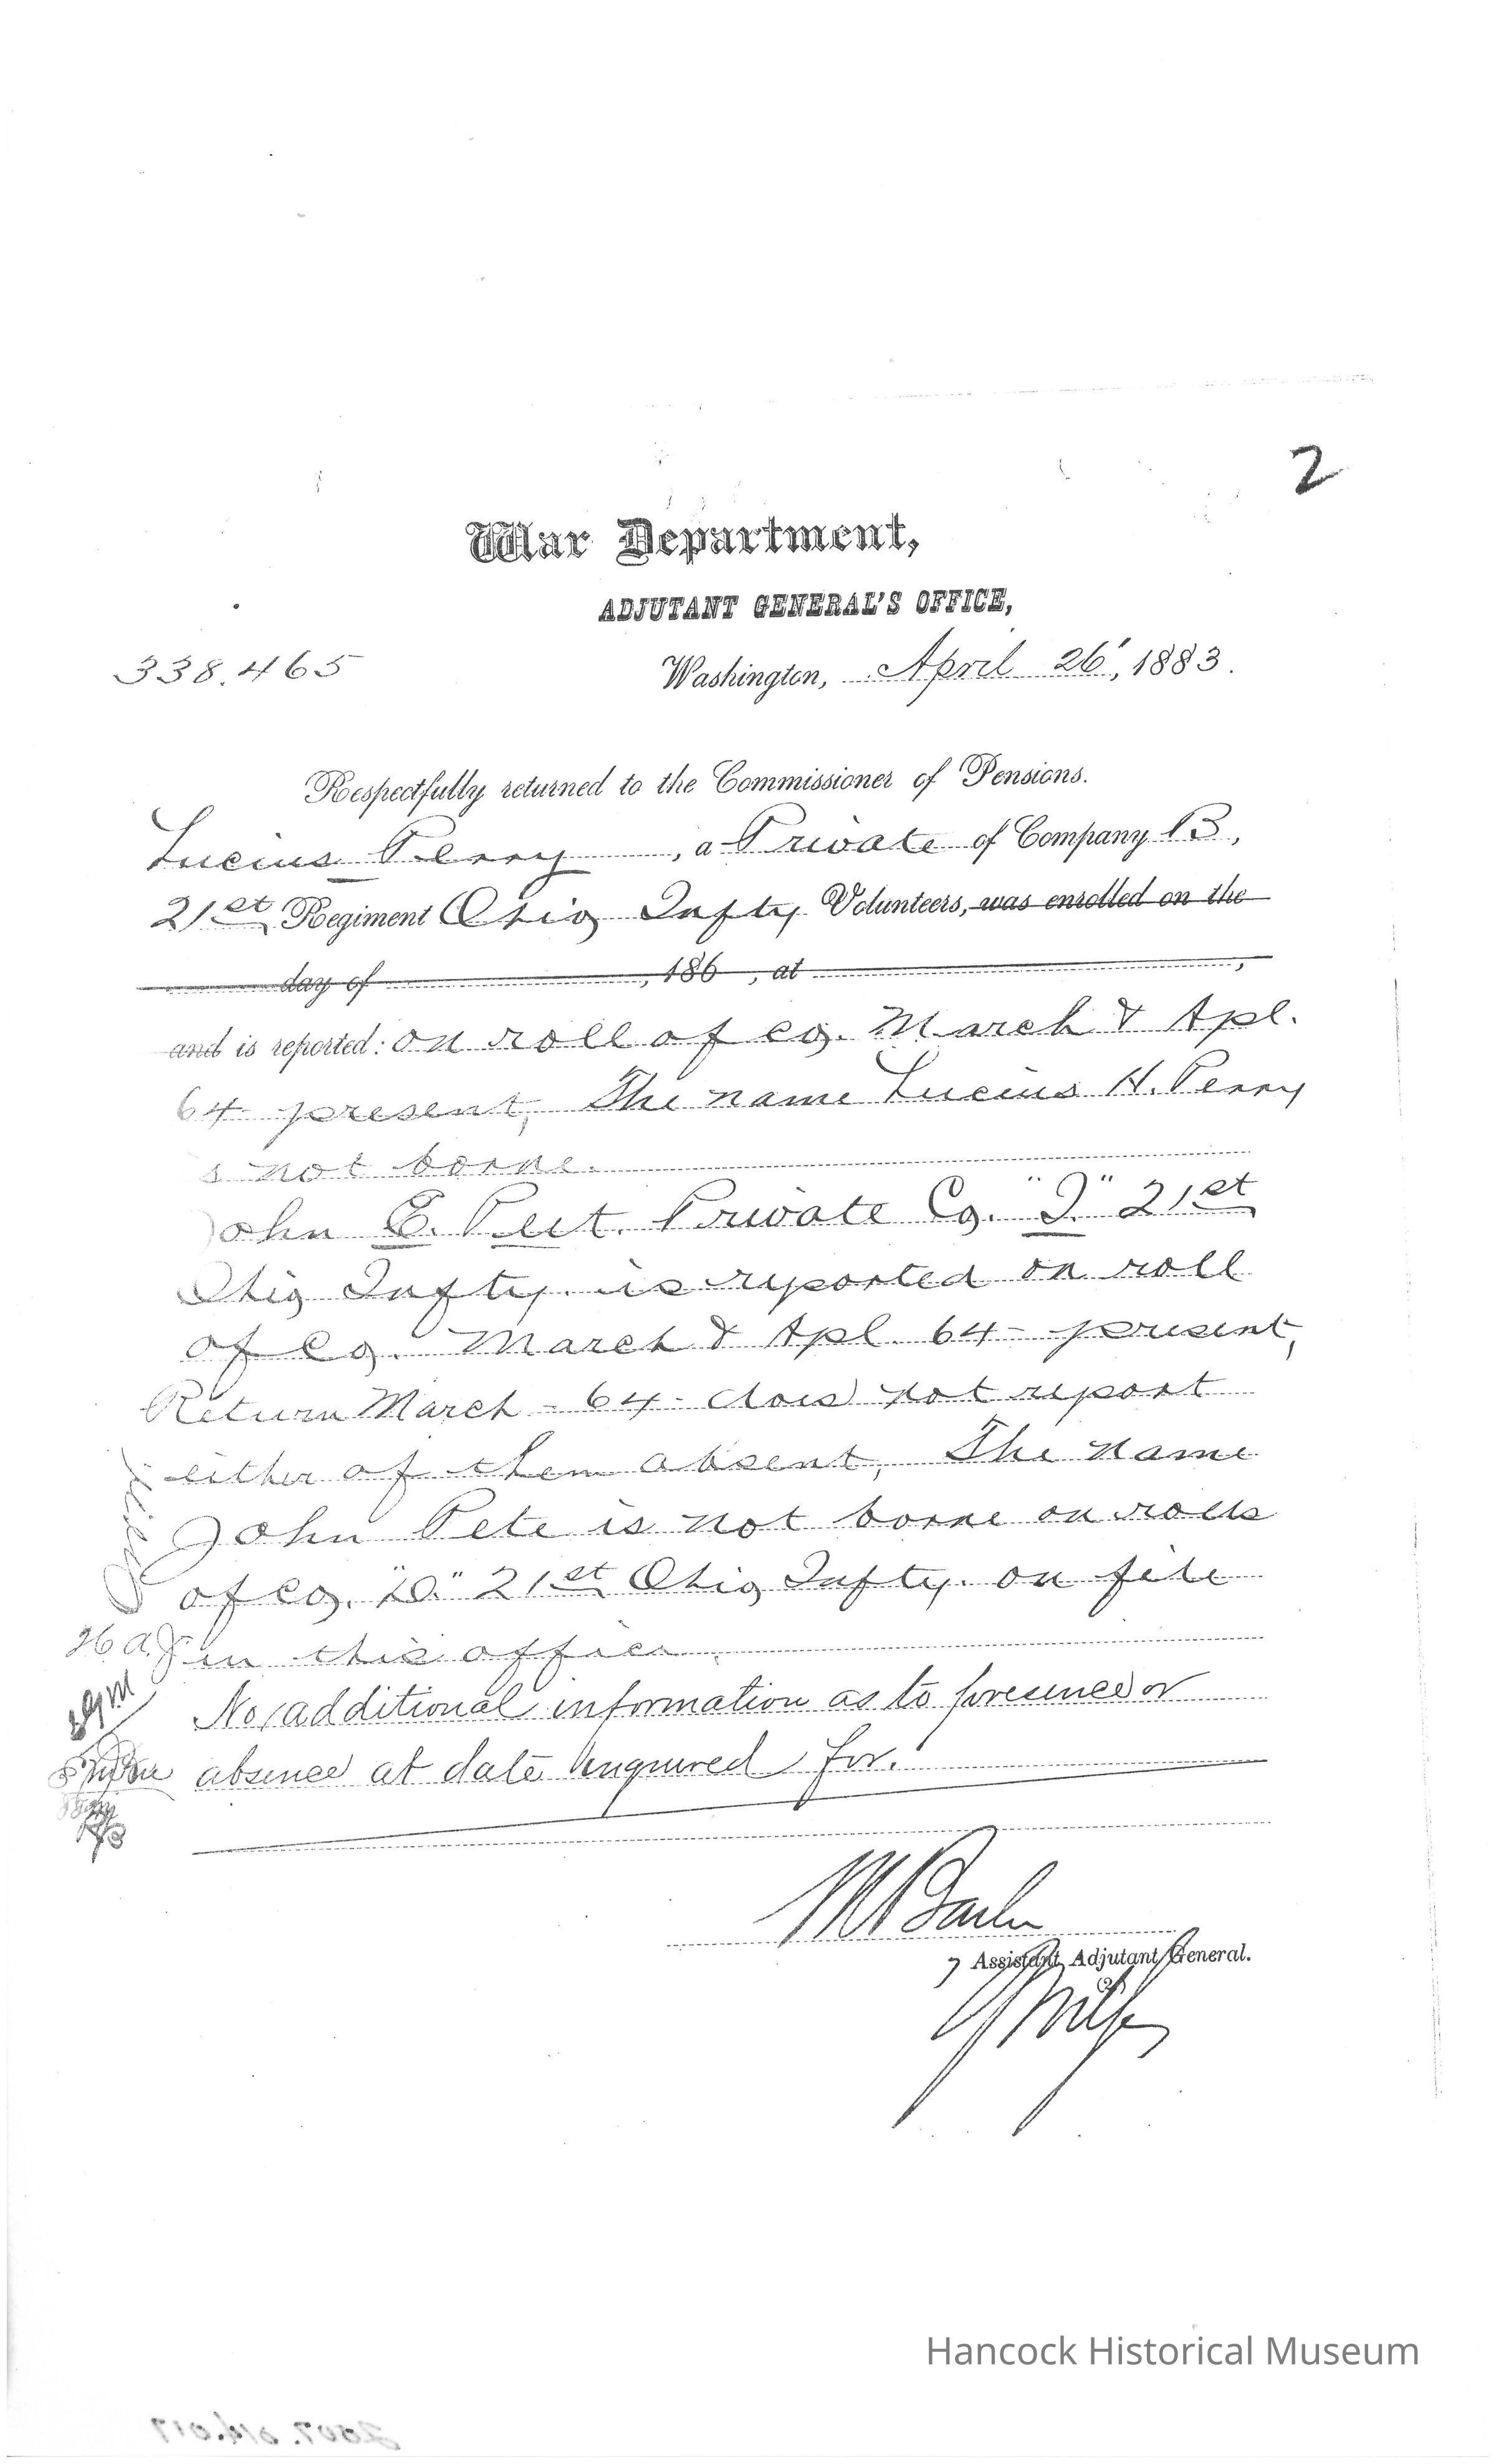 2
War Department,
ADJUTANT GENERAL'S OFFICE,
338.465
Washington, April 26, 1883.
Respectfully returned to the Commissioner of Pensions.
Lucius Perry, a Private of Company B,
21st Regiment Ohio Infty. Volunteers, was enrolled on the
day of , 186 , at ,
and is reported: on roll of Co. March & Apl.
64 present, The name Lucius H. Perry
s not borne.
John E. Peit. Private Co. "D." 21st
Ohio Infty. is reported on roll
of Co. March & Apl. 64 present,
Return March - 64 - does not report
either of them absent, The name
John Pete is not borne on rolls
of Co. "D." 21st Ohio Infty. on file
in this office.
No additional information as to presence or
absence at date enquired for.
Assistant Adjutant General.
Hancock Historical Museum